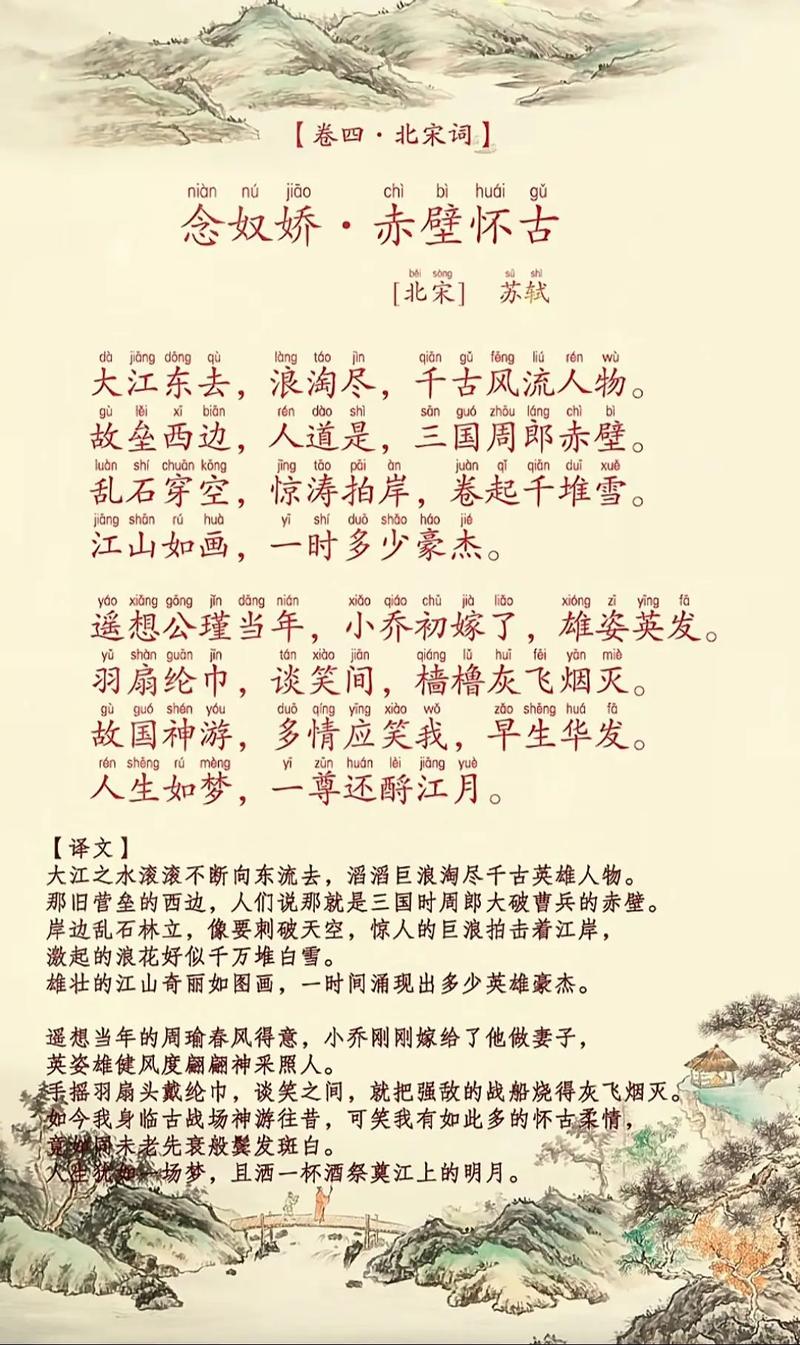 【卷四·北宋词】
niàn nú jiāo chì bì huái gǔ
念奴娇·赤壁怀古
běi sòng sū shì
[北宋] 苏轼
dà jiāng dōng qù làng táo jìn qiān gǔ fēng liú rén wù
大江东去，浪淘尽，千古风流人物。
gù lěi xī biān rén dào shì sān guó zhōu láng chì bì
故垒西边，人道是，三国周郎赤壁。
luàn shí chuān kōng jīng tāo pāi àn juàn qǐ qiān duī xuě
乱石穿空，惊涛拍岸，卷起千堆雪。
jiāng shān rú huà yī shí duō shǎo háo jié
江山如画，一时多少豪杰。
yáo xiǎng gōng jǐn dāng nián xiǎo qiáo chū jià liǎo xióng zī yīng fā
遥想公瑾当年，小乔初嫁了，雄姿英发。
yǔ shàn guān jīn tán xiào jiān qiáng lǔ huī fēi yān miè
羽扇纶巾，谈笑间，樯橹灰飞烟灭。
gù guó shén yóu duō qíng yīng xiào wǒ zǎo shēng huá fà
故国神游，多情应笑我，早生华发。
rén shēng rú mèng yī zūn huán lèi jiāng yuè
人生如梦，一尊还酹江月。
【译文】
大江之水滚滚不断向东流去，滔滔巨浪淘尽千古英雄人物。
那旧营垒的西边，人们说那就是三国时周郎大破曹兵的赤壁。
岸边乱石林立，像要刺破天空，惊人的巨浪拍击着江岸，
激起的浪花好似千万堆白雪。
雄壮的江山奇丽如图画，一时间涌现出多少英雄豪杰。
遥想当年的周瑜春风得意，小乔刚刚嫁给了他做妻子，
英姿雄健风度翩翩神采照人。
手摇羽扇头戴纶巾，谈笑之间，就把强敌的战船烧得灰飞烟灭。
如今我身临古战场神游往昔，可笑我有如此多的怀古柔情，
竟如同未老先衰般鬓发斑白。
人生犹如一场梦，且洒一杯酒祭奠江上的明月。